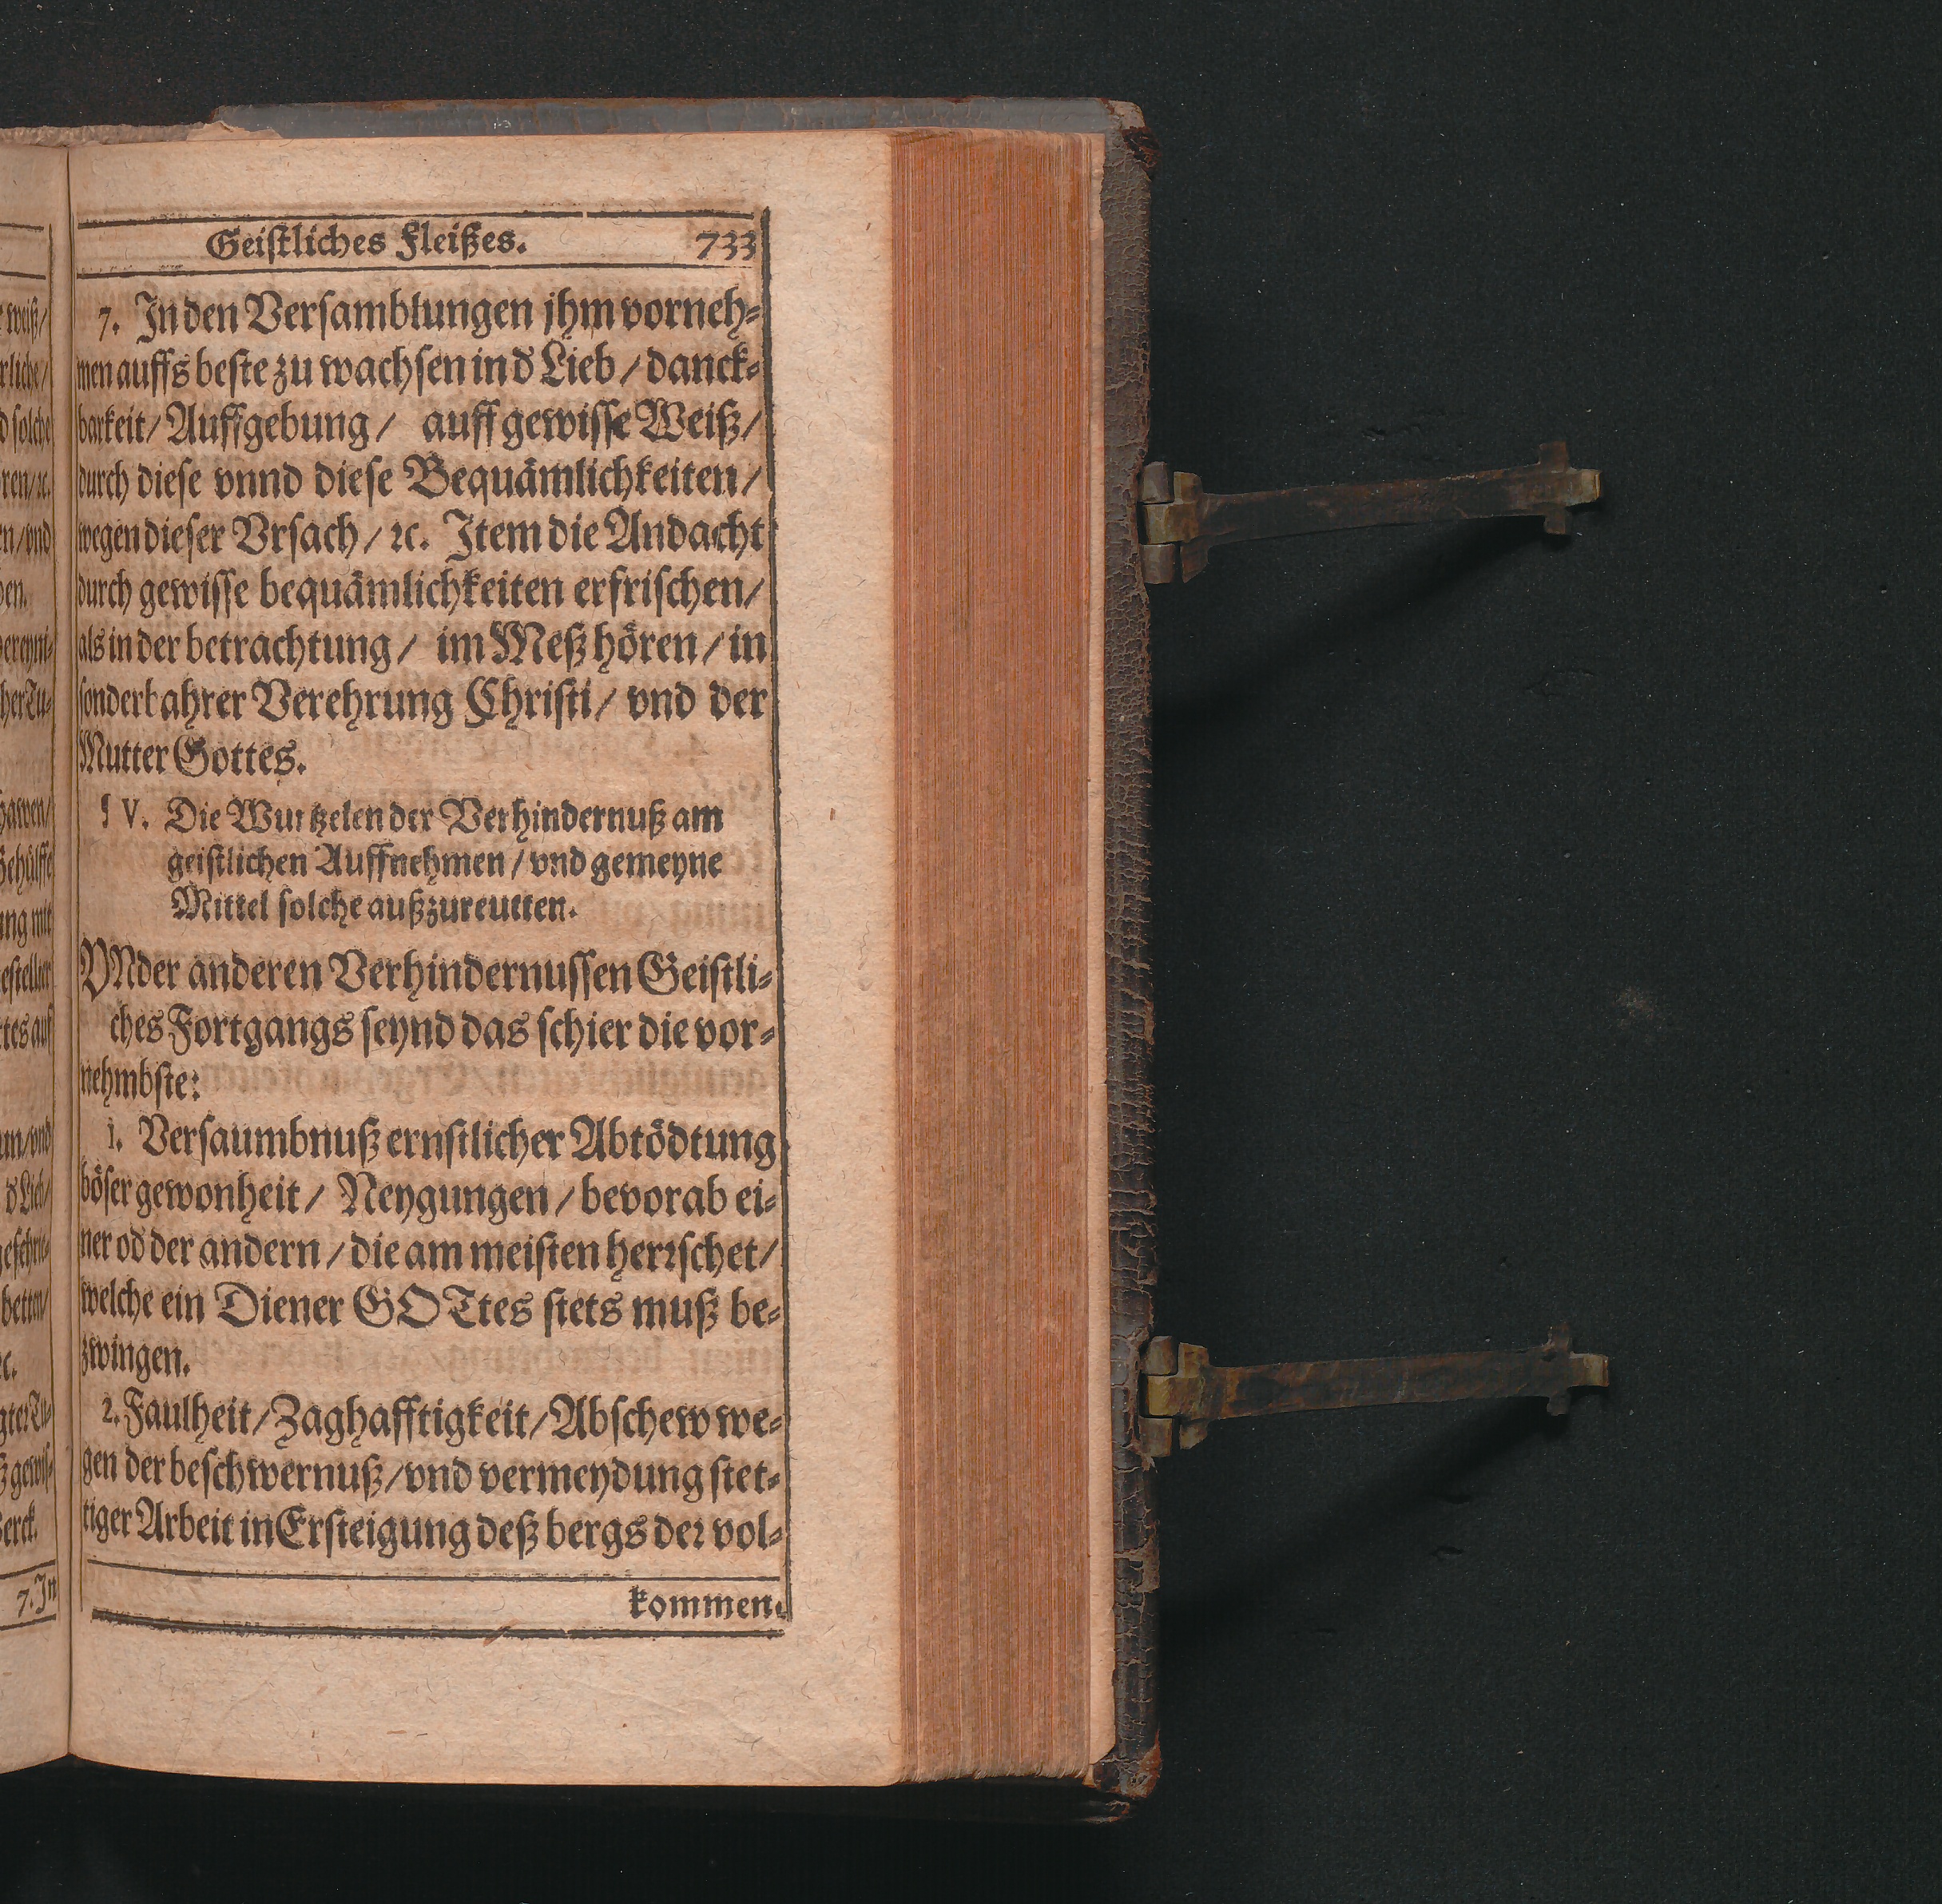 Geiſtliches Fleißes. 733
7. In den Verſamblungen jhm vorneh-
men auffs beſte zu wachſen in đ Lieb / danck-
barkeit / Auffgebung / auff gewiſſe Weiß /
durch dieſe vnnd dieſe Bequämlichkeiten /
wegen dieſer Vrſach / ꝛc. Item die Andacht
durch gewiſſe bequämlichkeiten erfriſchen /
als in der betrachtung / im Meß hören / in
ſonderbahrer Verehrung Chriſti / vnd der
Mutter Gottes.
¶ V. Die Wurtzelen der Verhindernuß am
geiſtlichen Auffnehmen / vnd gemeyne
Mittel ſolche außzureutten.
VNder anderen Verhindernuſſen Geiſtli-
ches Fortgangs ſeynd das ſchier die vor-
nehmbſte:
1. Verſaumbnuß ernſtlicher Abtödtung
böſer gewonheit / Neygungen / bevorab ei-
ner ođ der andern / die am meiſten herꝛſchet /
welche ein Diener GOTtes ſtets muß be-
zwingen.
2. Faulheit / Zaghafftigkeit / Abſchew we-
gen der beſchwernuß / vnd vermeydung ſtet-
tiger Arbeit in Erſteigung deß bergs deꝛ vol-
kommen-
weiß /
rliche /
ſolche
ren / ꝛc.
en / vnd
en.
ereyni-
her Tu-
hawen /
Gehülffe
ung mit
tes auß
un / vnd
đ Lieb /
betten /
ꝛc.
7. In